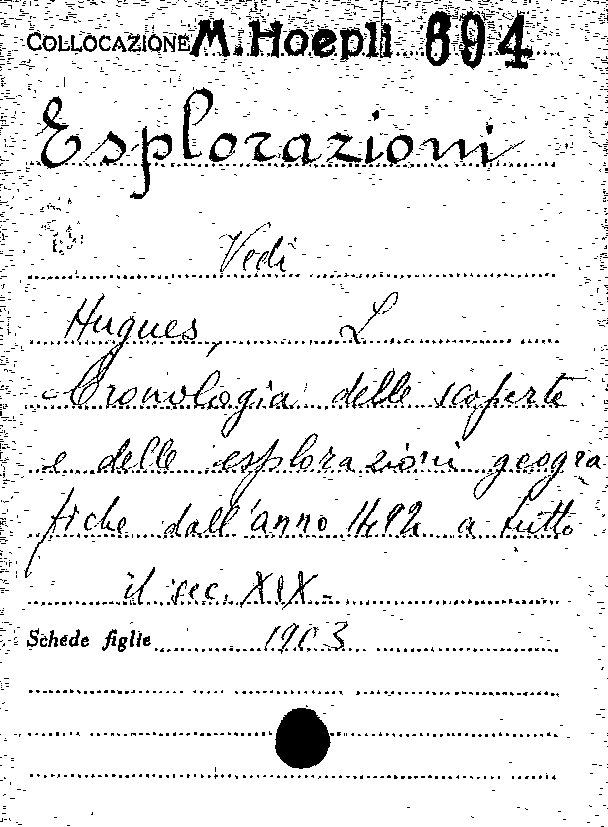 COLLOCAZIONE M. Hoepli 694
Esplorazioni
Vedi
Hugues, L
Cronologia delle scoperte
e delle esplorazioni geogra
fiche dall'anno 1492 a tutto
il sec. XIX.
Schede figlie 1903